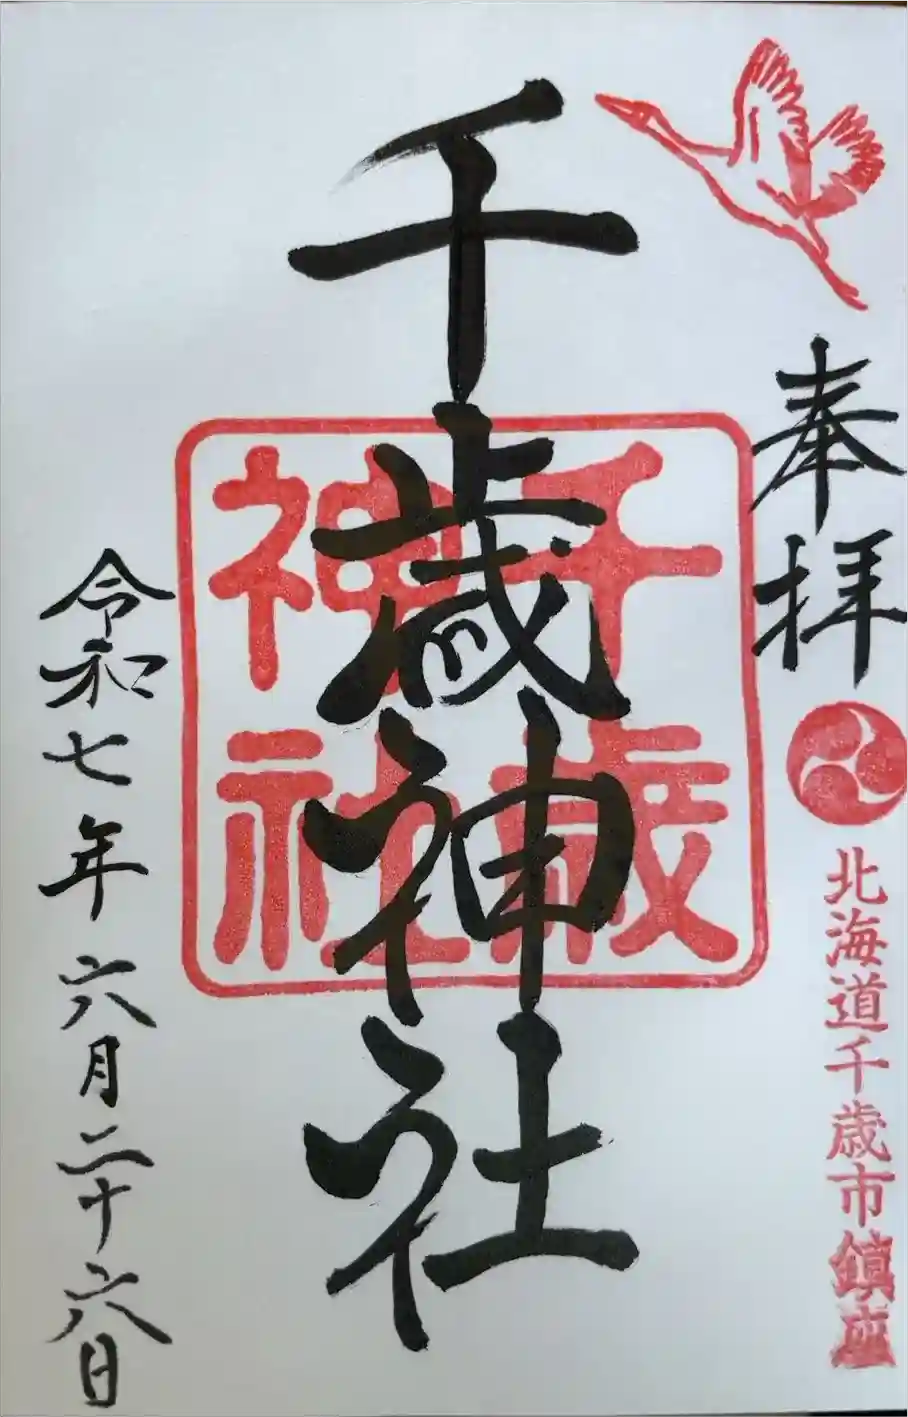 奉拝
北海道千歳市鎮座
千歳神社
千歳
神社
令和七年六月二十六日